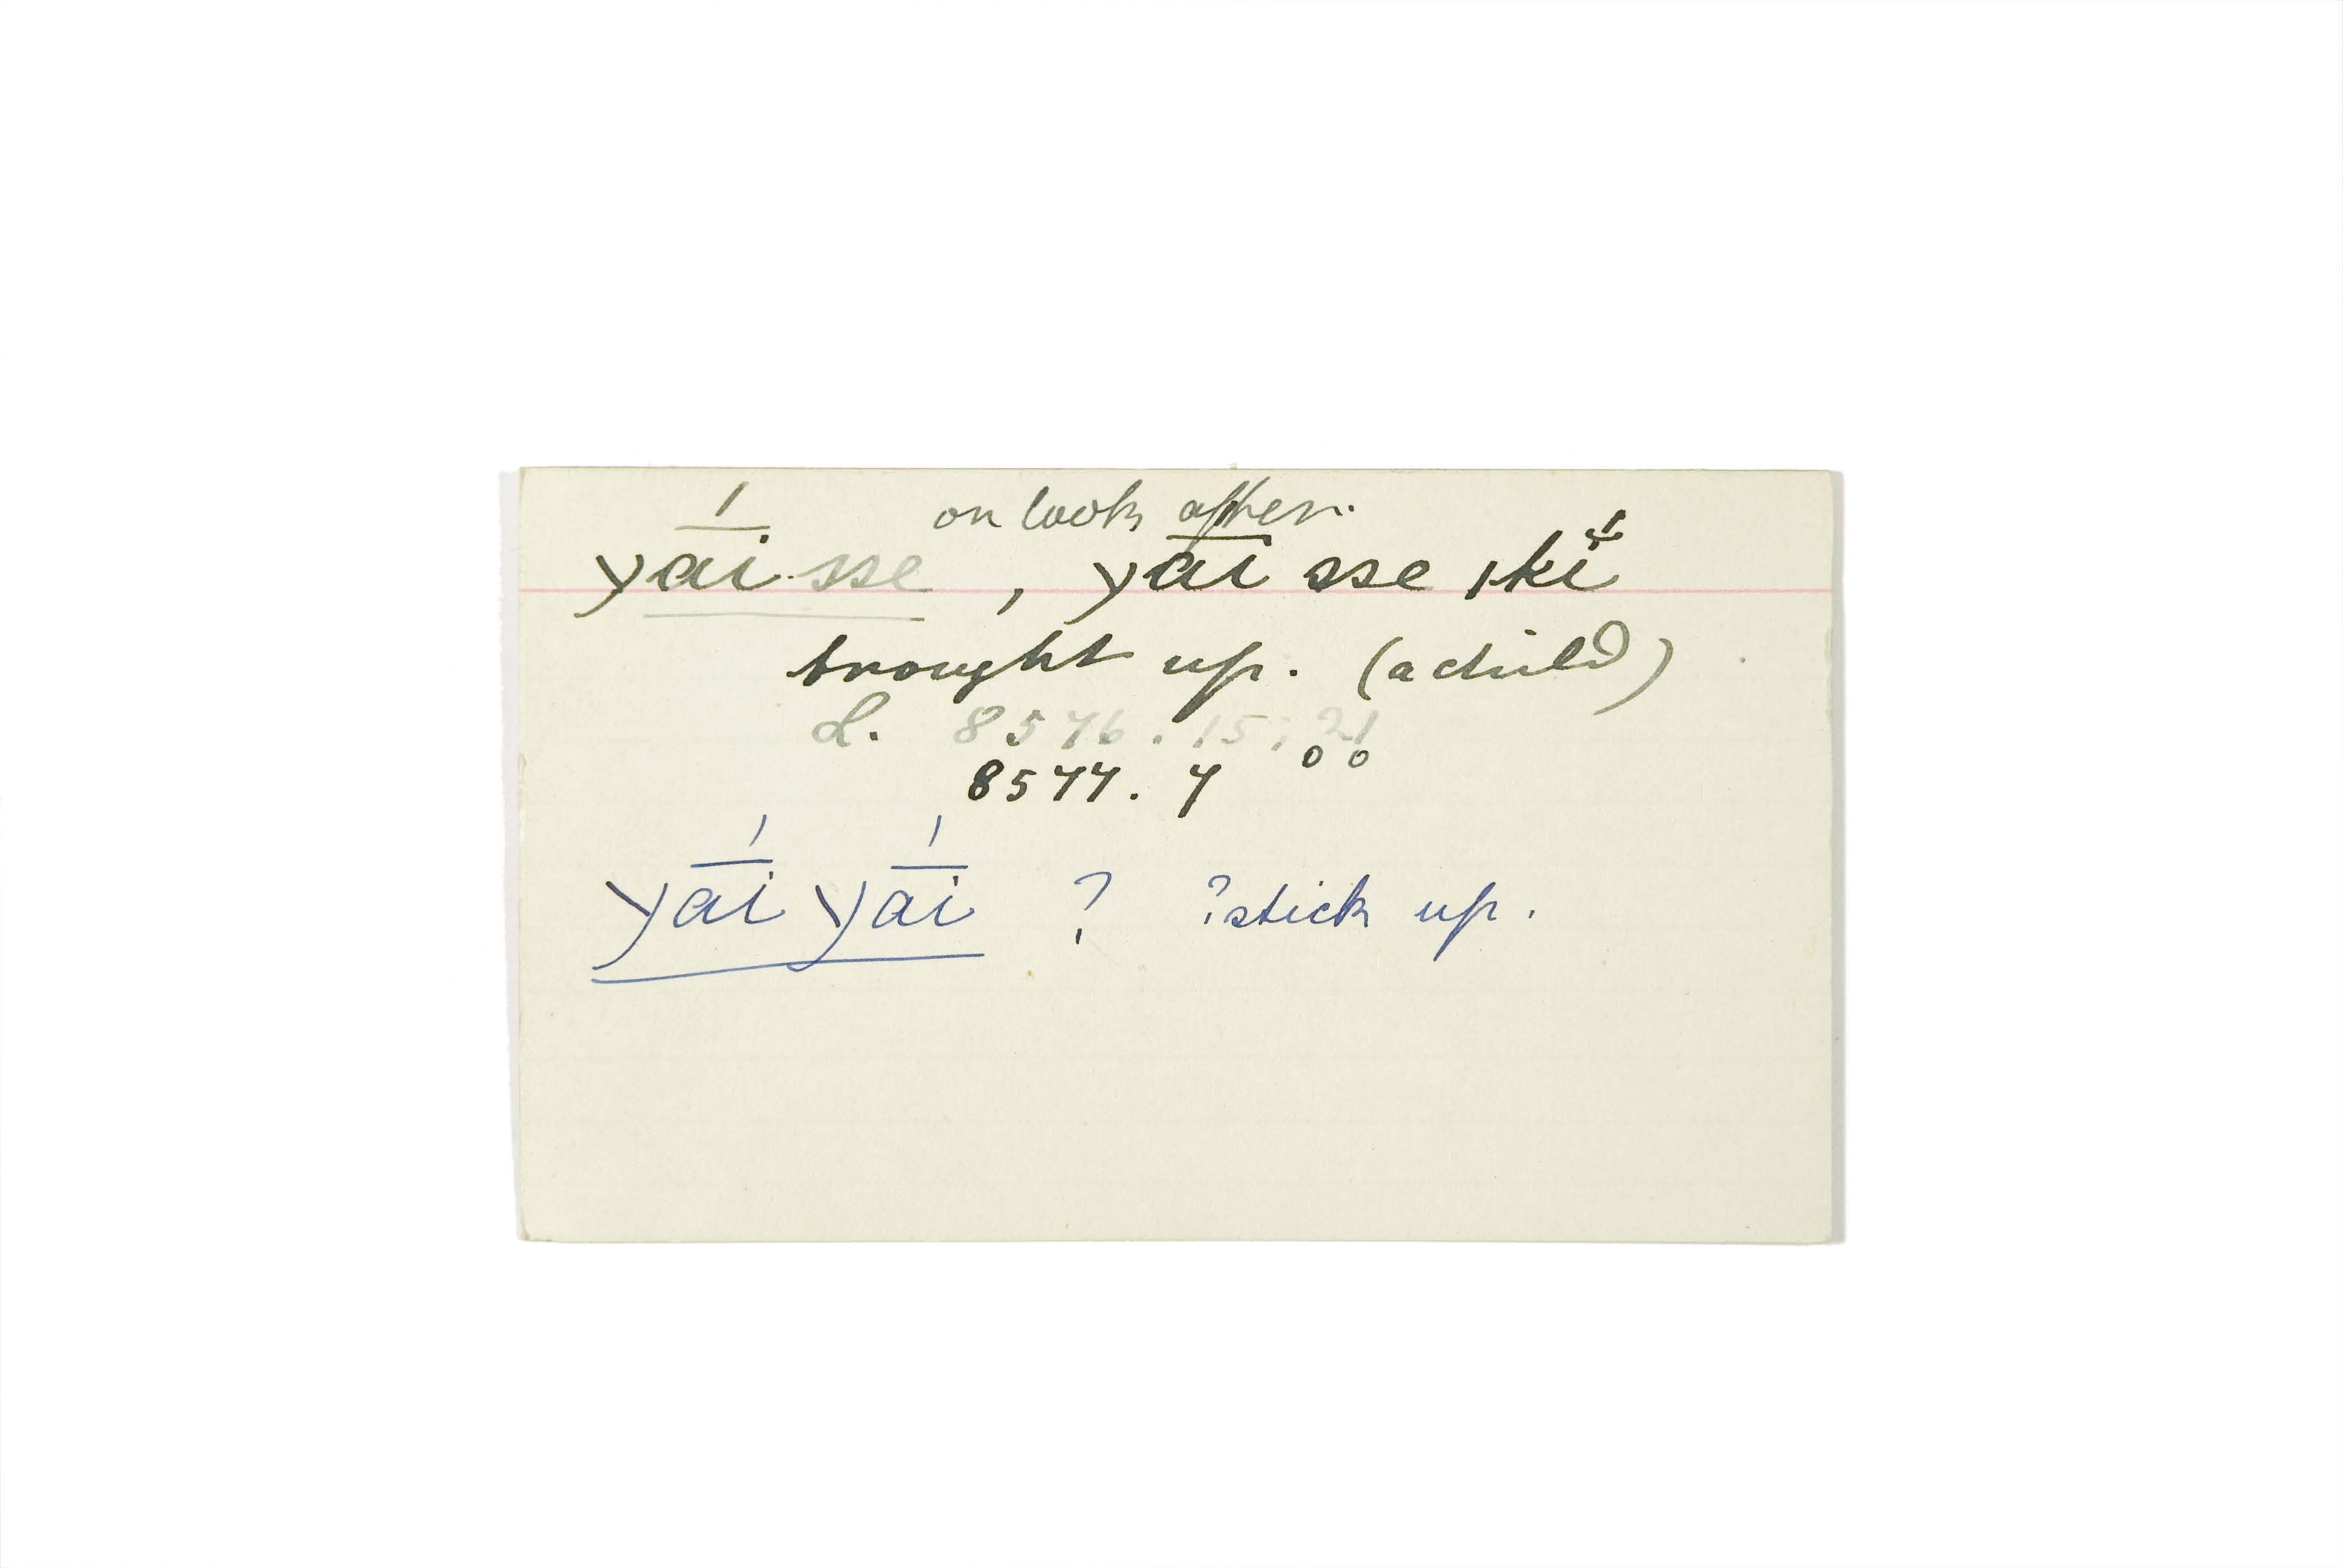 or look after.
yā́i sse, yāi sse ǀkĭ́
brought up. (a child)
L. 8576.15; 21
8577. 7 o o
yā́i yā́i ? ?stick up.